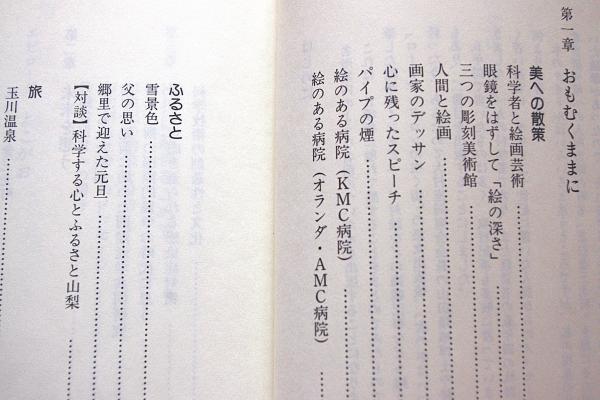 第一章　おもむくままに
美への散策
科学者と絵画芸術
眼鏡をはずして「絵の深さ」
三つの彫刻美術館
人間と絵画
画家のデッサン
心に残ったスピーチ
パイプの煙
絵のある病院（KMC病院）
絵のある病院（オランダ・AMC病院）
ふるさと
雪景色
父の思い
郷里で迎えた元旦
【対談】科学する心とふるさと山梨
旅
玉川温泉